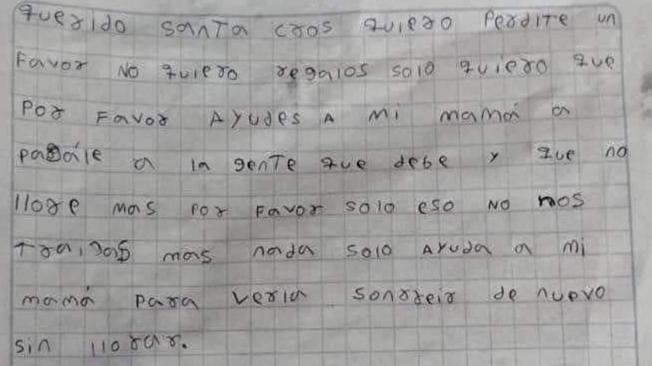 querido santa cros quiero perdite un
favor no quiero regalos solo quiero que
por favor ayudes a mi mamá a
pagále a la gente que debe y que no
llore mas por favor solo eso no nos
traigas mas nada solo ayuda a mi
mamá para verla sonrreir de nuevo
sin llorar.